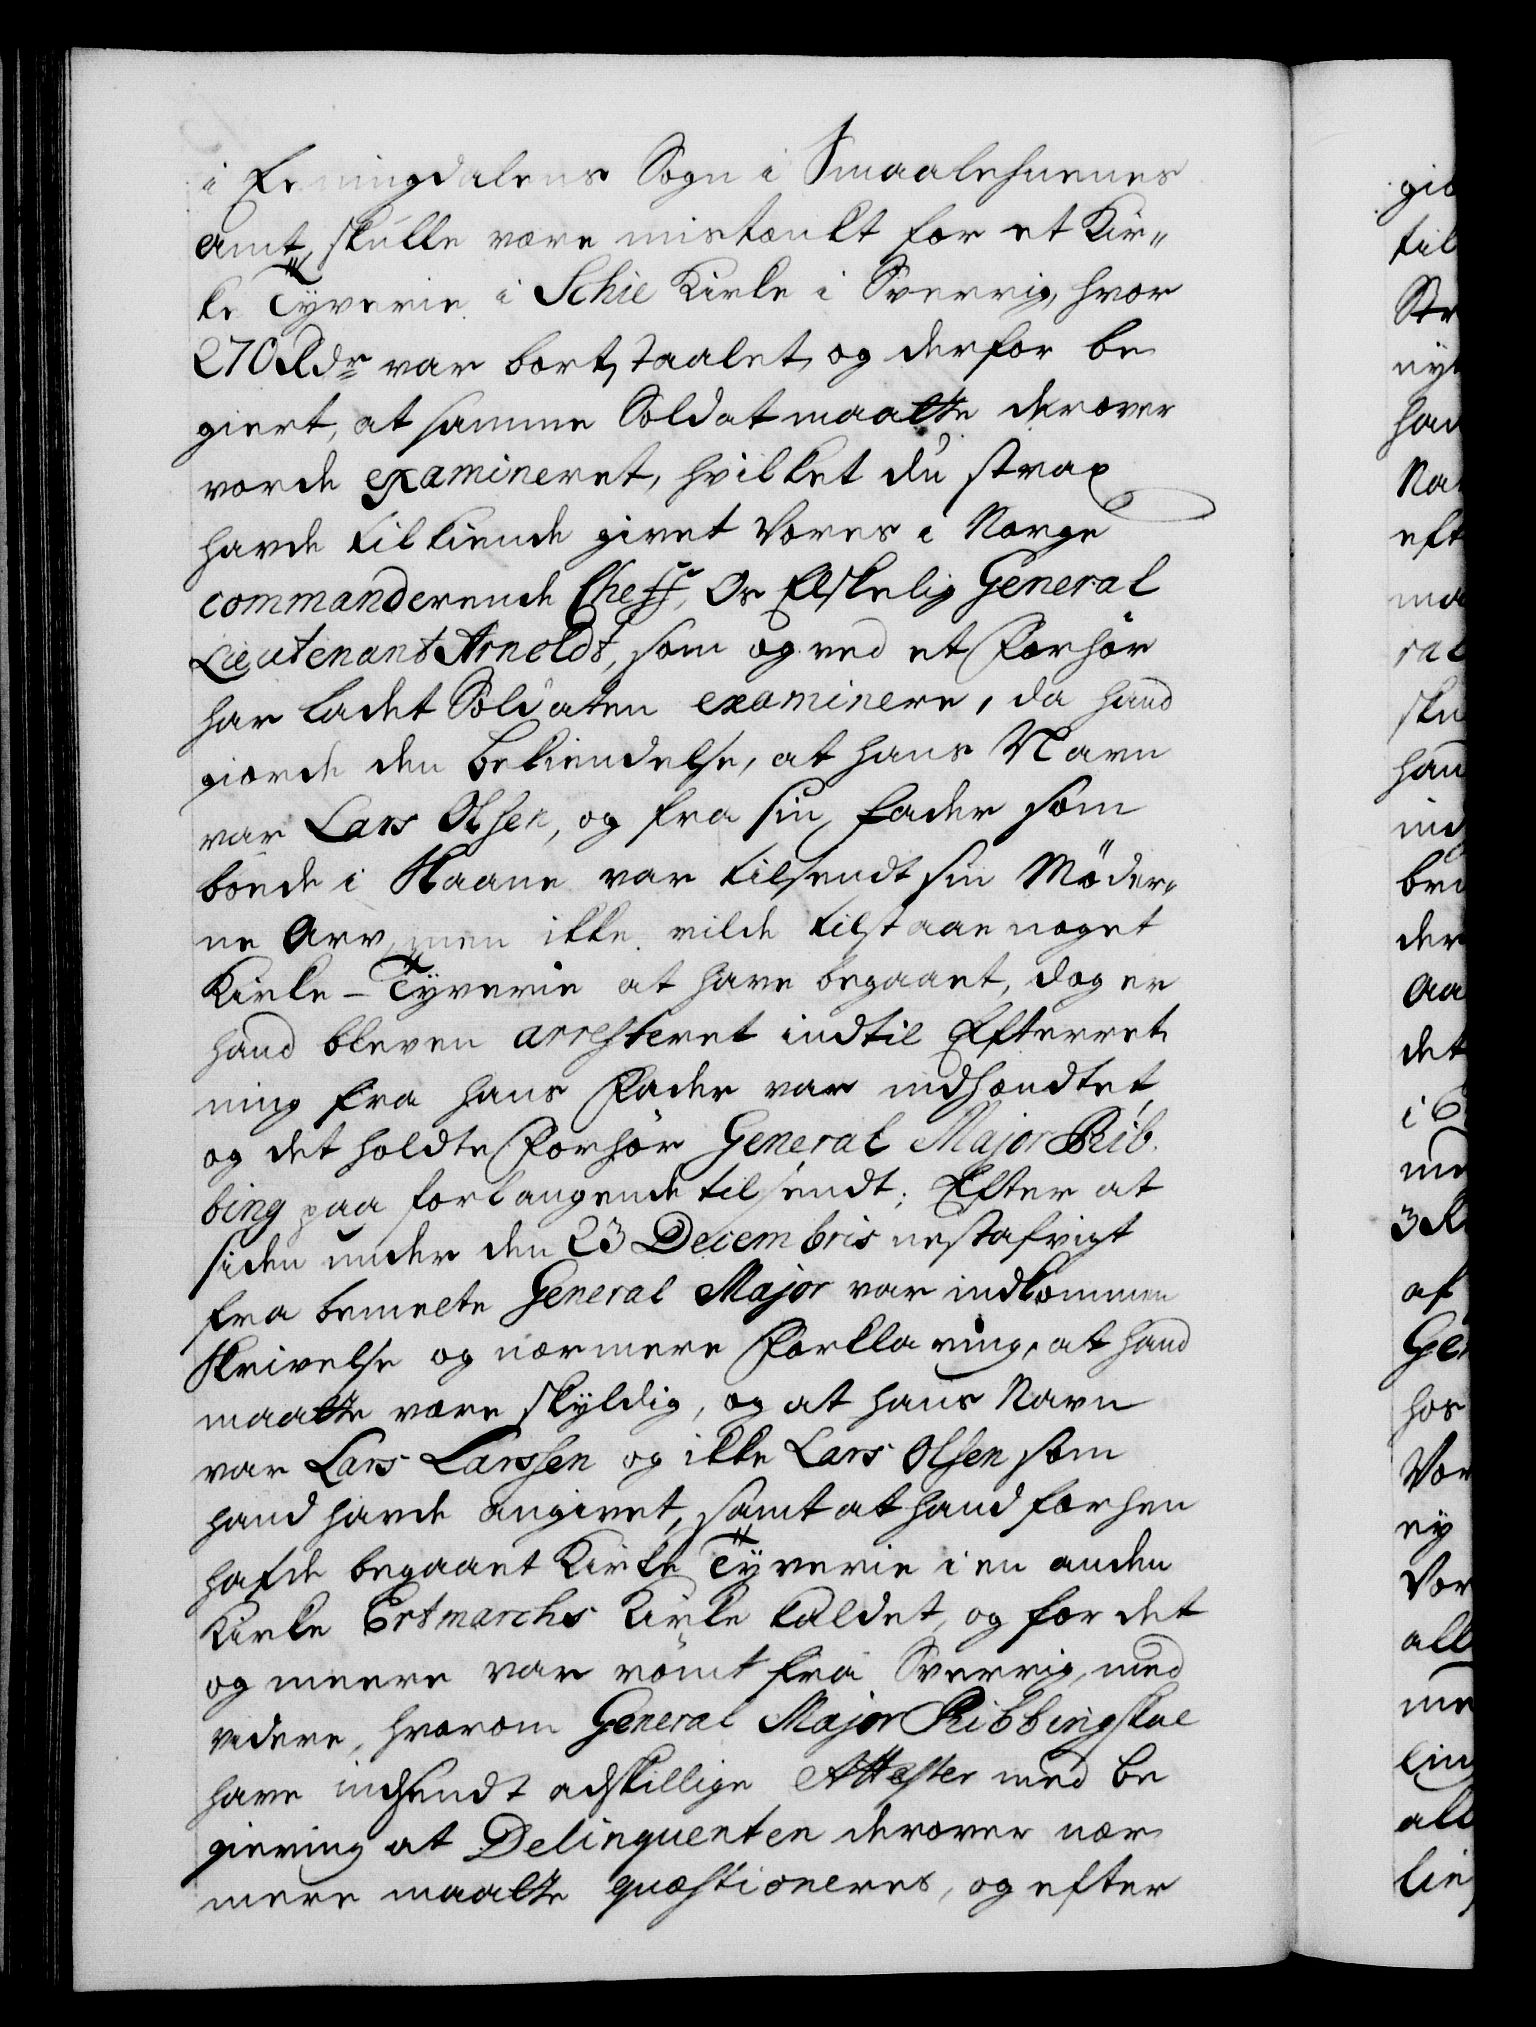 i Enningdalens Sogn i Smaalehnenes
amt, skulle være mistænkt for et Kir„
ke Tyverie i Schie Kirke i Sverrig, hvor
270 Rdr var bort staalet, og derfor be
giert, at samme Soldat maatte derover
vorde examineret, hvilket du strax
havde tilkiende givet Vores i Norge
commanderende Cheff, Os Elskelig General
Lieutenant Arnoldt, som og ved et Forhör
har ladet Soldaten examinere, da hand
giorde den bekiendelse, at hans Navn
var Lars Olsen, og fra sin Fader som
boede i Skaane var tilsendt sin Möder„
ne Arv, men ikke vilde tilstaae noget
Kirke-Tyverie at have begaaet, dog er
hand bleven arresteret indtil Efterret
ning fra hans Fader var indhændtet,
og det holdte Forhör General Major Rib
bing paa forlangende tilsendt; Efter at
siden under den 23 Decembris nestafvigt
fra bemelte General Major var indkommen
Skrivelse og nærmere Forklaring, at hand
maatte være skyldig, og at hans Navn
var Lars Larssen og ikke Lars Olsen som
hand havde angivet, samt at hand forhen
hafde begaaet Kirke Tyverie i en anden
Kirke Ertmarchs Kirke kaldet, og for det
og meere var römt fra Sverrig, med
videre, hvorom General Major Ribbing skal
have indsendt adskillige Attester med be
giering at Delinquenten derover nær
mere maatte quæstioneres, og efter